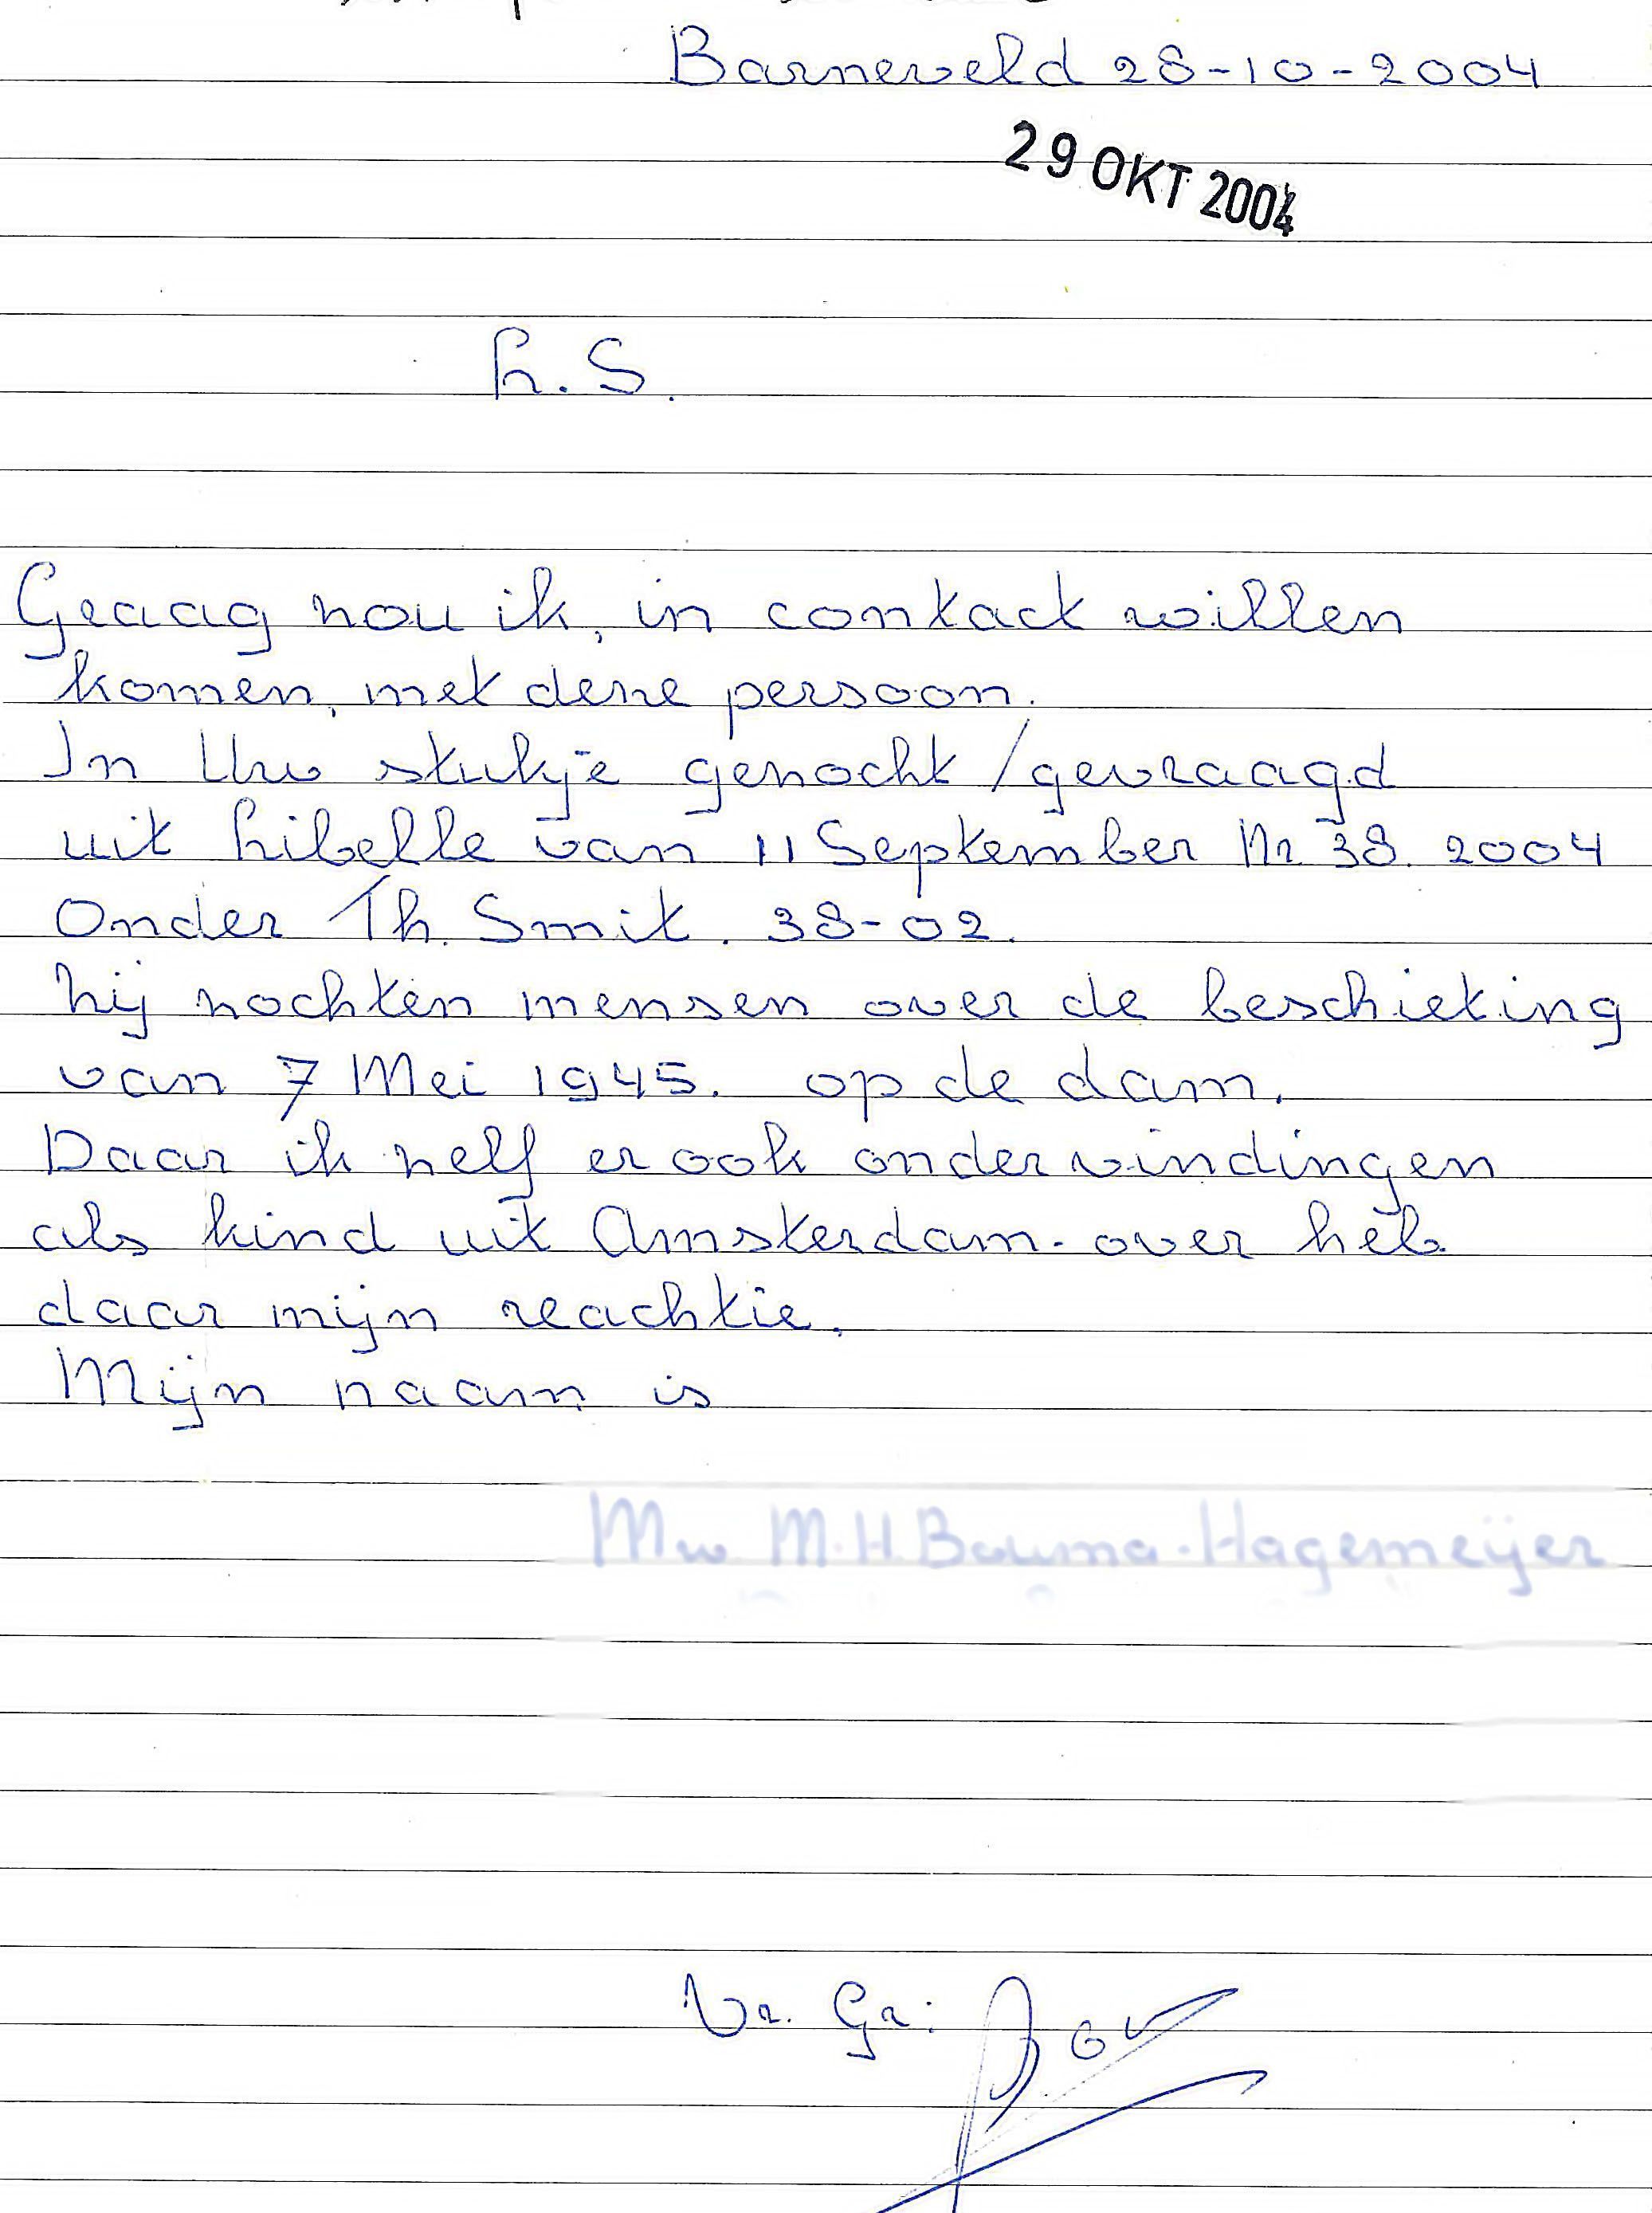 Barneveld 28-10-2004
29 OKT 2004
L.S.
Geaag zou ik, in contact willen
komen, met deze persoon.
In Uw stukje gezocht / gevraagd
uit Libelle van 11 September Nr 38. 2004
Onder Th. Smit. 38-02.
hij zochten mensen over de beschieting
van 7 Mei 1945. op de dam.
Daar ik zelf er ook ondervindingen
als kind uit Amsterdam. over heb
daar mijn reachtie.
Mijn naam is
Mw M.H. Bouma-Hagemeijer
Vr. Gr: